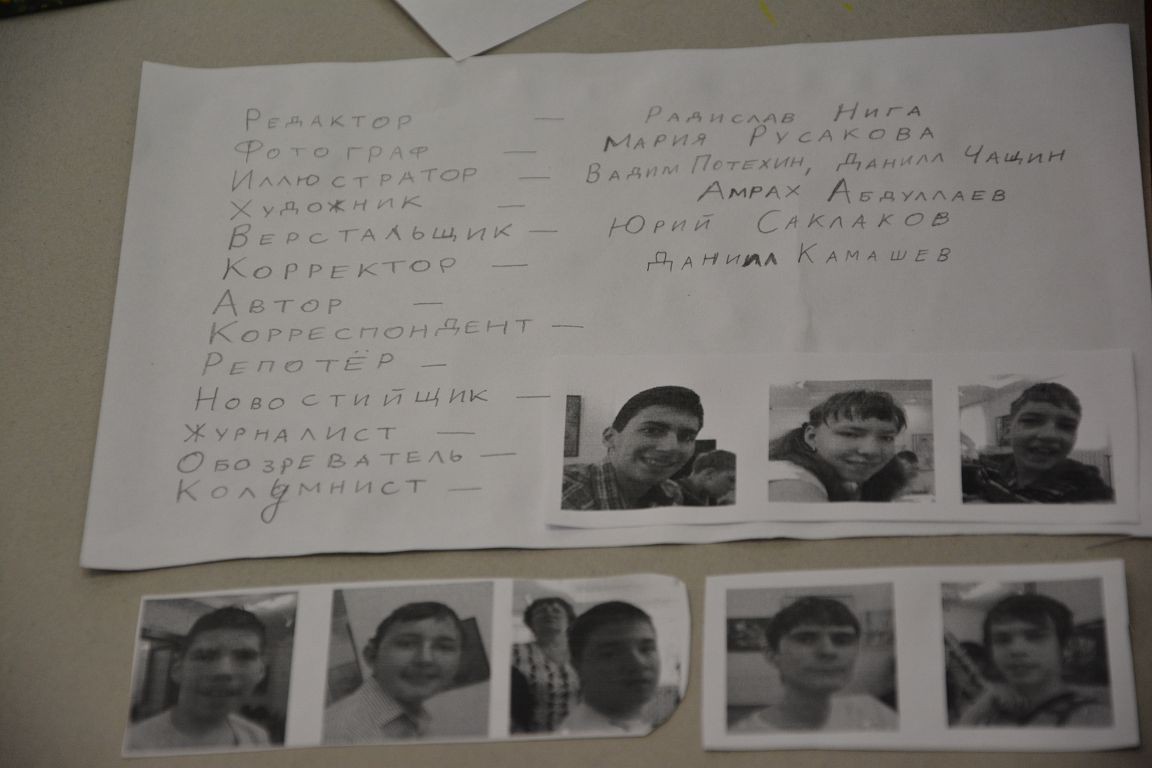 Редактор — Радислав Нига
Фотограф — Мария Русакова
Иллюстратор — Вадим Потехин, Данилл Чащин
Художник — Амрах Абдуллаев
Верстальщик — Юрий Саклаков
Корректор — Данилл Камашев
Автор —
Корреспондент —
Репотёр —
Новостийщик —
Журналист —
Обозреватель —
Колумнист —